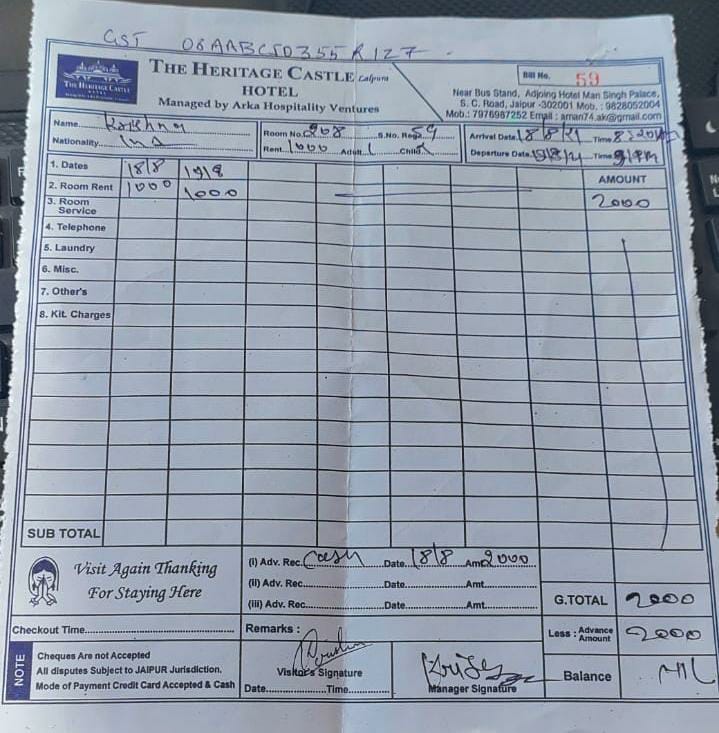 GST 08AABCSD355R1Z7
THE HERITAGE CASTLE
HOTEL
THE HERITAGE CASTLE Lalpura
HOTEL
Managed by Arka Hospitality Ventures
Bill No. 59
Near Bus Stand, Adjoing Hotel Man Singh Palace,
S. C. Road, Jaipur -302001 Mob. : 9828052004
Mob.: 7976987252 Email : aman74.ak@gmail.com
Name Krishna
Nationality Ind
Room No. 208 S.No. Reg. 59
Rent. 1000 Adult 1 Child
Arrival Date. 18/8/21 Time 8:20
Departure Date. 19/8/21 Time 9 PM
1. Dates 18/8 19/8 AMOUNT
2. Room Rent 1000 1000 2000
3. Room Service
4. Telephone
5. Laundry
6. Misc.
7. Other's
8. Kit. Charges
SUB TOTAL
Visit Again Thanking
For Staying Here
(i) Adv. Rec. Cash Date 18/8 Amt. 2000
(ii) Adv. Rec. Date Amt.
(iii) Adv. Rec. Date Amt.
G.TOTAL 2000
Checkout Time
Remarks :
Less : Advance Amount 2000
NOTE
Cheques Are not Accepted
All disputes Subject to JAIPUR Jurisdiction.
Mode of Payment Credit Card Accepted & Cash
Visitor's Signature
Date Time
Manager Signature
Balance NIL